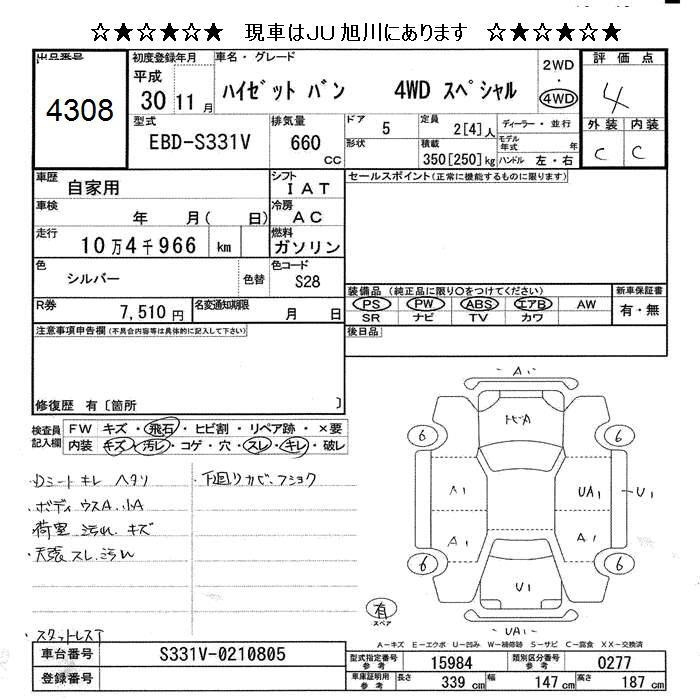 ☆★☆★☆★ 現車はJU旭川にあります ☆★☆★☆★
出品番号 初度登録年月 車名・グレード 評価点
4308 平成 30 11月 ハイゼット バン 4WD スペシャル 2WD・4WD 4
型式 排気量 ドア 定員 ディーラー・並行 外装 内装
EBD-S331V 660 CC 5 2[4]人 モデル年式 年 C C
形状 積載 350[250]kg ハンドル 左・右
車歴 自家用 シフト IAT セールスポイント(正常に機能するものに限ります)
車検 年 月( 日) 冷房 AC
走行 10万4千966 km 燃料 ガソリン
色 シルバー 色替 色コード S28
装備品 (純正品に限り○をつけてください) 新車保証書
R券 7,510円 名変通知期限 月 日 PS PW ABS エアB AW 有・無
SR ナビ TV カワ
注意事項申告欄(不具合内容等は具体的に記入して下さい) 後日品
修復歴 有〔箇所 〕
検査員記入欄 FW キズ・飛石・ヒビ割・リペア跡・×要
内装 キズ・汚レ・コゲ・穴・スレ・キレ・破レ
・Dシートキレ ヘタリ ・下回りカビ、フショク
・ボディ ウスA.小A
・荷室 汚れ、キズ
・天張スレ、汚れ
・スタットレスT
A1
トビA
6 6
A1 UA1 U1
A1 A1
6 6
U1
有 スペア
UA1
A−キズ E−エクボ U−凹み W−補修跡 S−サビ C−腐食 XX−交換済
車台番号 S331V-0210805 型式指定番号 参考 15984 類別区分番号 参考 0277
登録番号 車庫証明用 参考 長さ 339 cm 幅 147 cm 高さ 187 cm